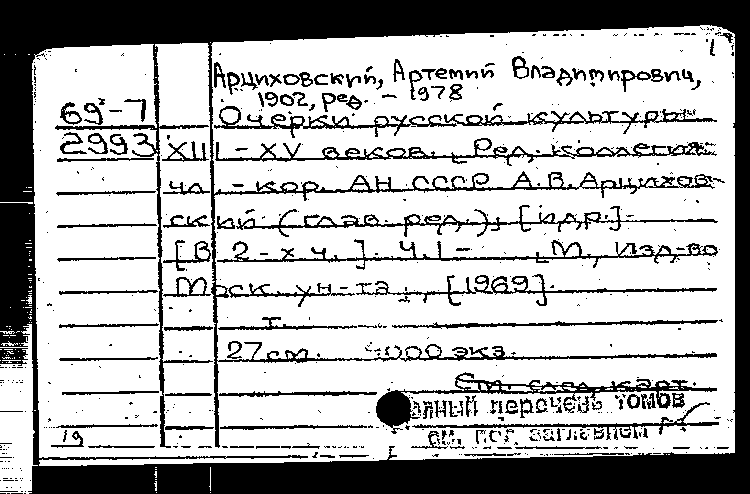 1
Арциховский, Артемий Владимирович,
1902, ред. - 1978
69-7
Очерки русской культуры
2993
XIII - XV веков. Ред. коллегия:
чл. - кор. АН СССР А.В. Арцихов-
ский (глав. ред.), [и др.]-
[В 2-х ч.]. Ч.1- М., Изд-во
Моск. ун-та, [1969].
т.
27 см. 000 экз.
См. след. карт.
перечень томов
см. под заглавием
19